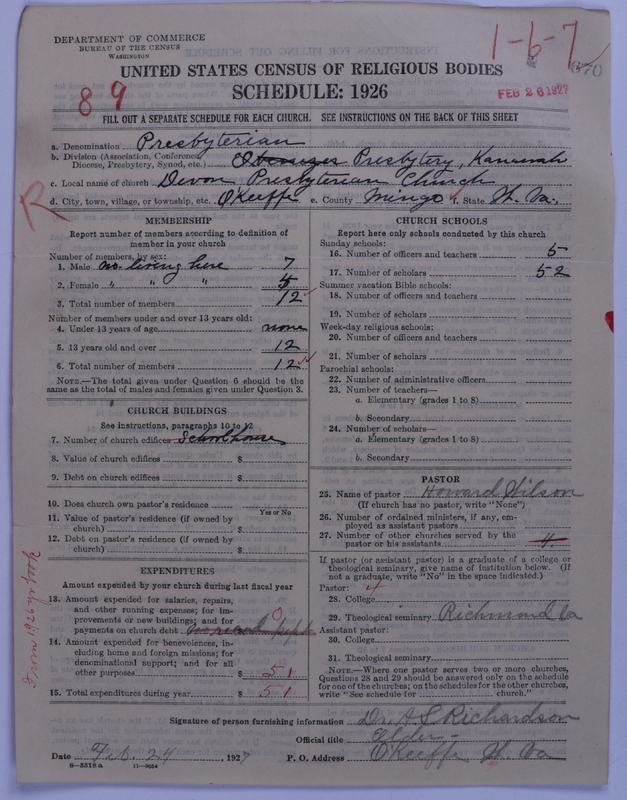 DEPARTMENT OF COMMERCE
BUREAU OF THE CENSUS
WASHINGTON
1-6-7
670
UNITED STATES CENSUS OF RELIGIOUS BODIES
SCHEDULE: 1926
89
FEB 26 1927
FILL OUT A SEPARATE SCHEDULE FOR EACH CHURCH. SEE INSTRUCTIONS ON THE BACK OF THIS SHEET
a. Denomination Presbyterian
b. Division (Association, Conference, Diocese, Presbytery, Synod, etc.) Ebenezer Presbytery, Kanawah
c. Local name of church Devon Presbyterian Church
d. City, town, village, or township, etc. O'Keeffe e. County Mingo f. State W. Va.
R
MEMBERSHIP
Report number of members according to definition of
member in your church
Number of members, by sex:
1. Male no. living here 7
2. Female " " " 5
3. Total number of members 12
Number of members under and over 13 years old:
4. Under 13 years of age none
5. 13 years old and over 12
6. Total number of members 12
NOTE.—The total given under Question 6 should be the
same as the total of males and females given under Question 3.
CHURCH BUILDINGS
See instructions, paragraphs 10 to 12
7. Number of church edifices School house
8. Value of church edifices $
9. Debt on church edifices $
10. Does church own pastor's residence
Yes or No
11. Value of pastor's residence (if owned by
church) $
12. Debt on pastor's residence (if owned by
church) $
EXPENDITURES
Amount expended by your church during last fiscal year
13. Amount expended for salaries, repairs,
and other running expenses; for im-
provements or new buildings; and for
payments on church debt 0
14. Amount expended for benevolences, in-
cluding home and foreign missions; for
denominational support; and for all
other purposes $ 51
15. Total expenditures during year $ 51
From 1926 yr book
CHURCH SCHOOLS
Report here only schools conducted by this church
Sunday schools:
16. Number of officers and teachers 5
17. Number of scholars 52
Summer vacation Bible schools:
18. Number of officers and teachers
19. Number of scholars
Week-day religious schools:
20. Number of officers and teachers
21. Number of scholars
Parochial schools:
22. Number of administrative officers
23. Number of teachers—
a. Elementary (grades 1 to 8)
b. Secondary
24. Number of scholars—
a. Elementary (grades 1 to 8)
b. Secondary
PASTOR
25. Name of pastor Howard Wilson
(If church has no pastor, write "None")
26. Number of ordained ministers, if any, em-
ployed as assistant pastors
27. Number of other churches served by the
pastor or his assistants 4
If pastor (or assistant pastor) is a graduate of a college or
theological seminary, give name of institution below. (If
not a graduate, write "No" in the space indicated.)
Pastor:
28. College
29. Theological seminary Richmond Va
Assistant pastor:
30. College
31. Theological seminary
NOTE.—Where one pastor serves two or more churches,
Questions 28 and 29 should be answered only on the schedule
for one of the churches; on the schedules for the other churches,
write "See schedule for church."
Signature of person furnishing information Dr. A S Richardson
Official title Elder
Date Feb. 24, 1927 P. O. Address O'Keeffe W. Va
8—5518a 11—9054